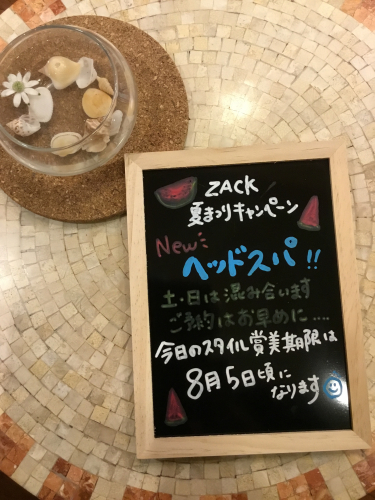 ZACK
夏まつりキャンペーン
New
ヘッドスパ!!
土・日は混み合います
ご予約はお早めに....
今日のスタイル賞美期限は
8月5日頃に
なります